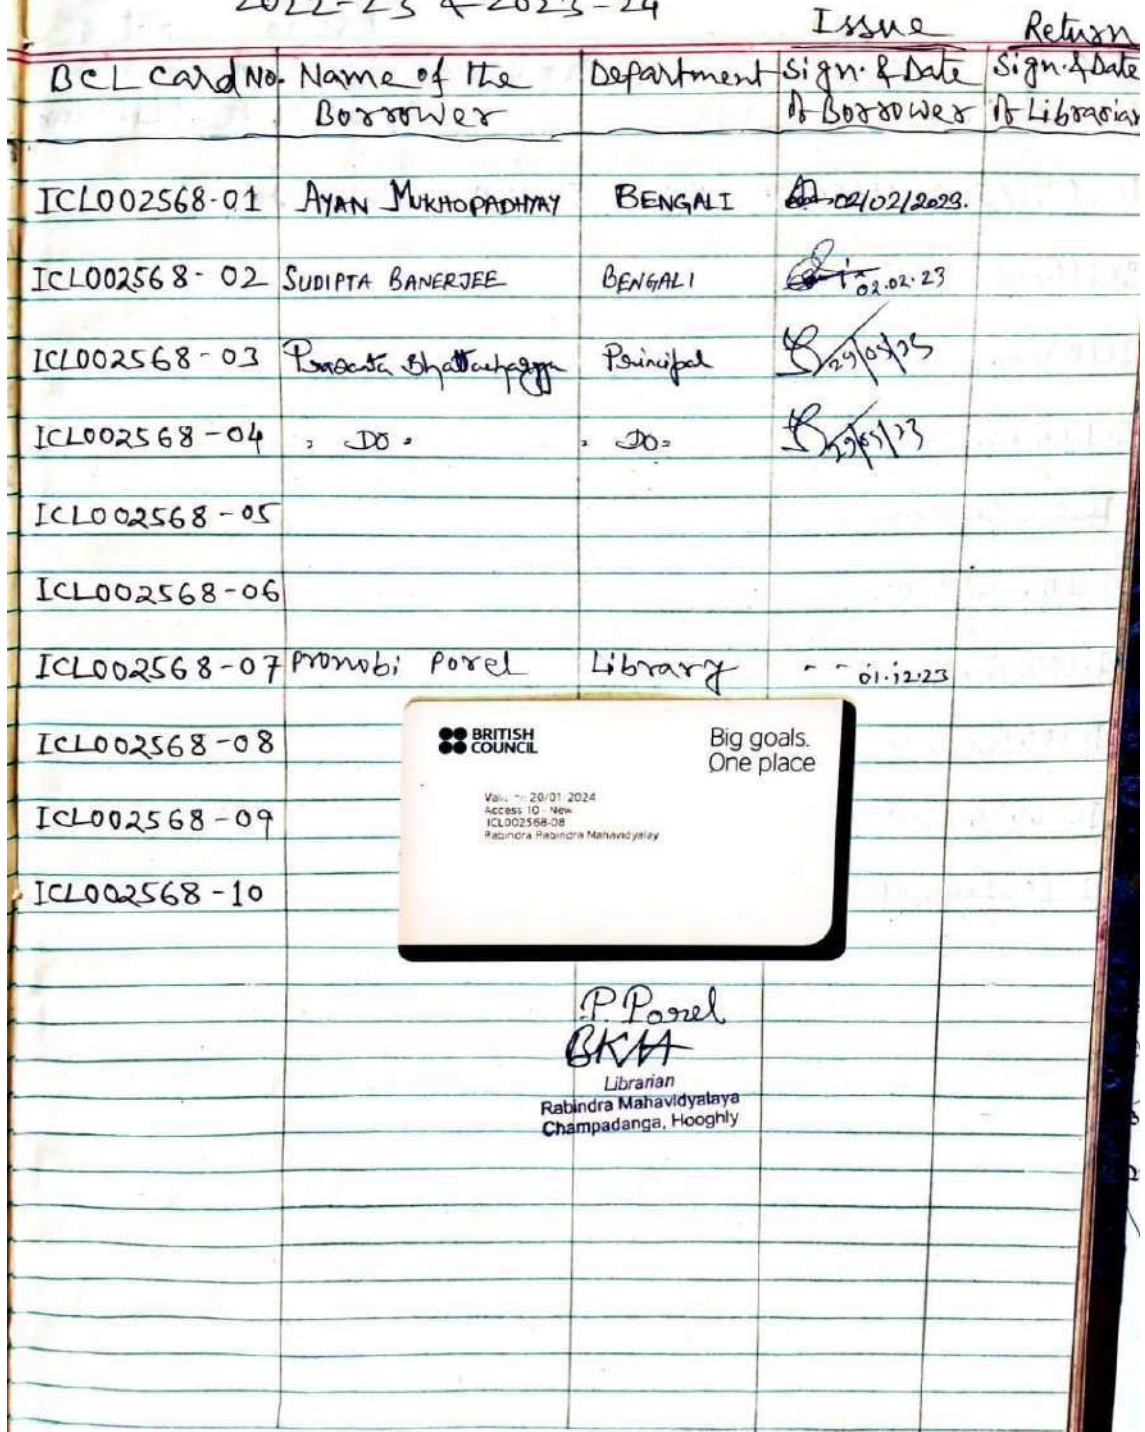 2022-23 & 2023-24
Issue Return
BCL Card No. Name of the Department Sign. & Date Sign. & Date
Borrower of Borrower of Librarian
ICL002568-01 AYAN MUKHOPADHYAY BENGALI 02/02/2023.
ICL002568-02 SUDIPTA BANERJEE BENGALI 02.02.23
ICL002568-03 Prasanta Bhattacharyya Principal
ICL002568-04 Do Do
ICL002568-05
ICL002568-06
ICL002568-07 Pronobi Porel Library 01.12.23
ICL002568-08
ICL002568-09
ICL002568-10
BRITISH
COUNCIL
Big goals.
One place
20/01/2024
Access 10 - New
ICL002568-08
Rabindra Rabindra Mahavidyalay
P. Porel
Librarian
Rabindra Mahavidyalaya
Champadanga, Hooghly